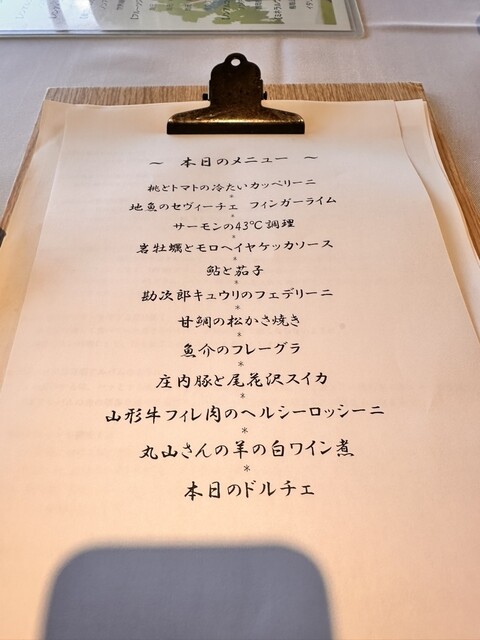 ～ 本日のメニュー ～
桃とトマトの冷たいカッペリーニ
*
地魚のセヴィーチェ フィンガーライム
*
サーモンの43℃調理
*
岩牡蠣とモロヘイヤケッカソース
*
鮎と茄子
*
勘次郎キュウリのフェデリーニ
*
甘鯛の松かさ焼き
*
魚介のフレーグラ
*
庄内豚と尾花沢スイカ
*
山形牛フィレ肉のヘルシーロッシーニ
*
丸山さんの羊の白ワイン煮
*
本日のドルチェ